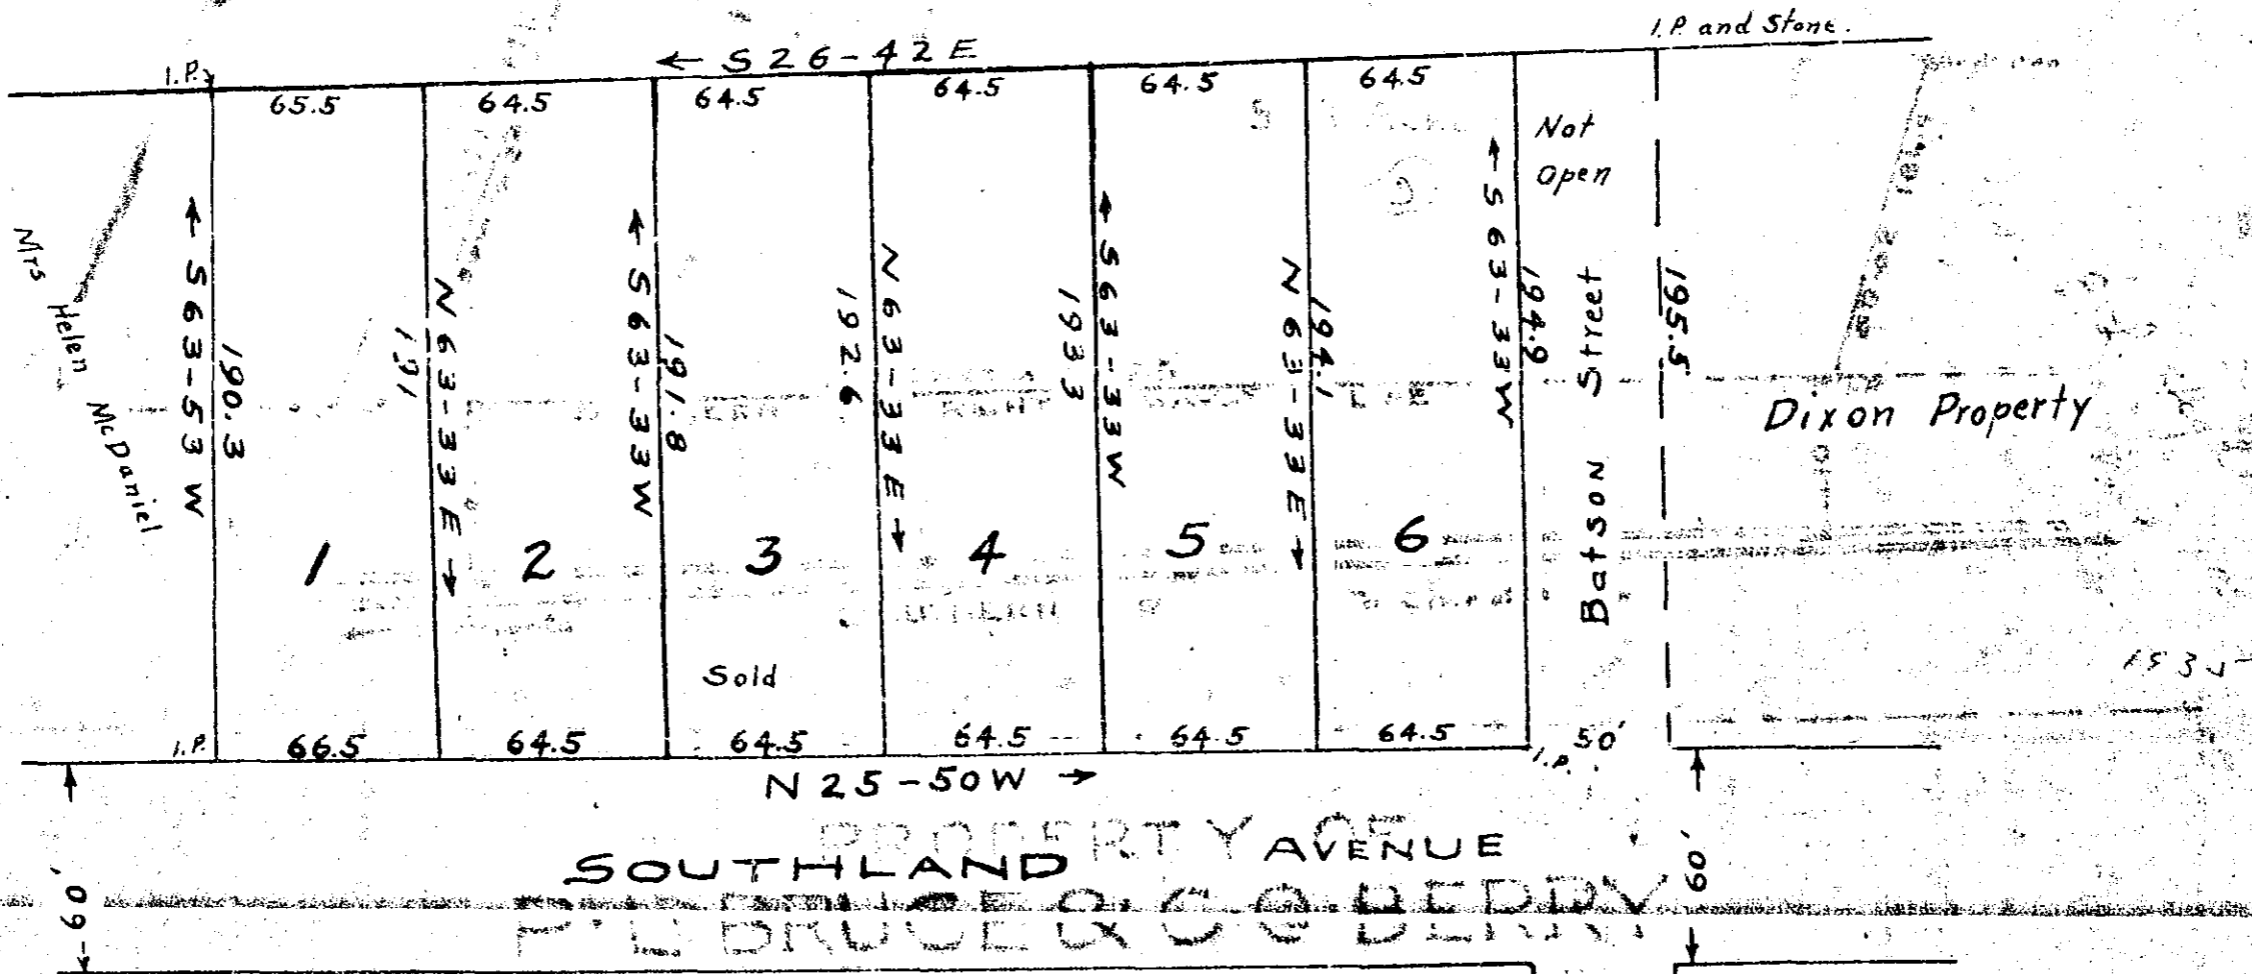 I.P. and Stone.
← S 26-42 E
I.P.
65.5 64.5 64.5 64.5 64.5 64.5
Not
Open
Mrs Helen McDaniel
← S 63-53 W
190.3
191
N 63-33 E →
← S 63-33 W
191.8
192.6
N 63-33 E →
193.3
← S 63-33 W
N 63-33 E →
194.1
← S 63-33 W
194.9
Batson Street
195.5
Dixon Property
1 2 3 4 5 6
Sold
I.P. 66.5 64.5 64.5 64.5 64.5 64.5 I.P. 50'
N 25-50 W →
60'
60'
PROPERTY OF
SOUTHLAND AVENUE
BRUCE & C. BERRY